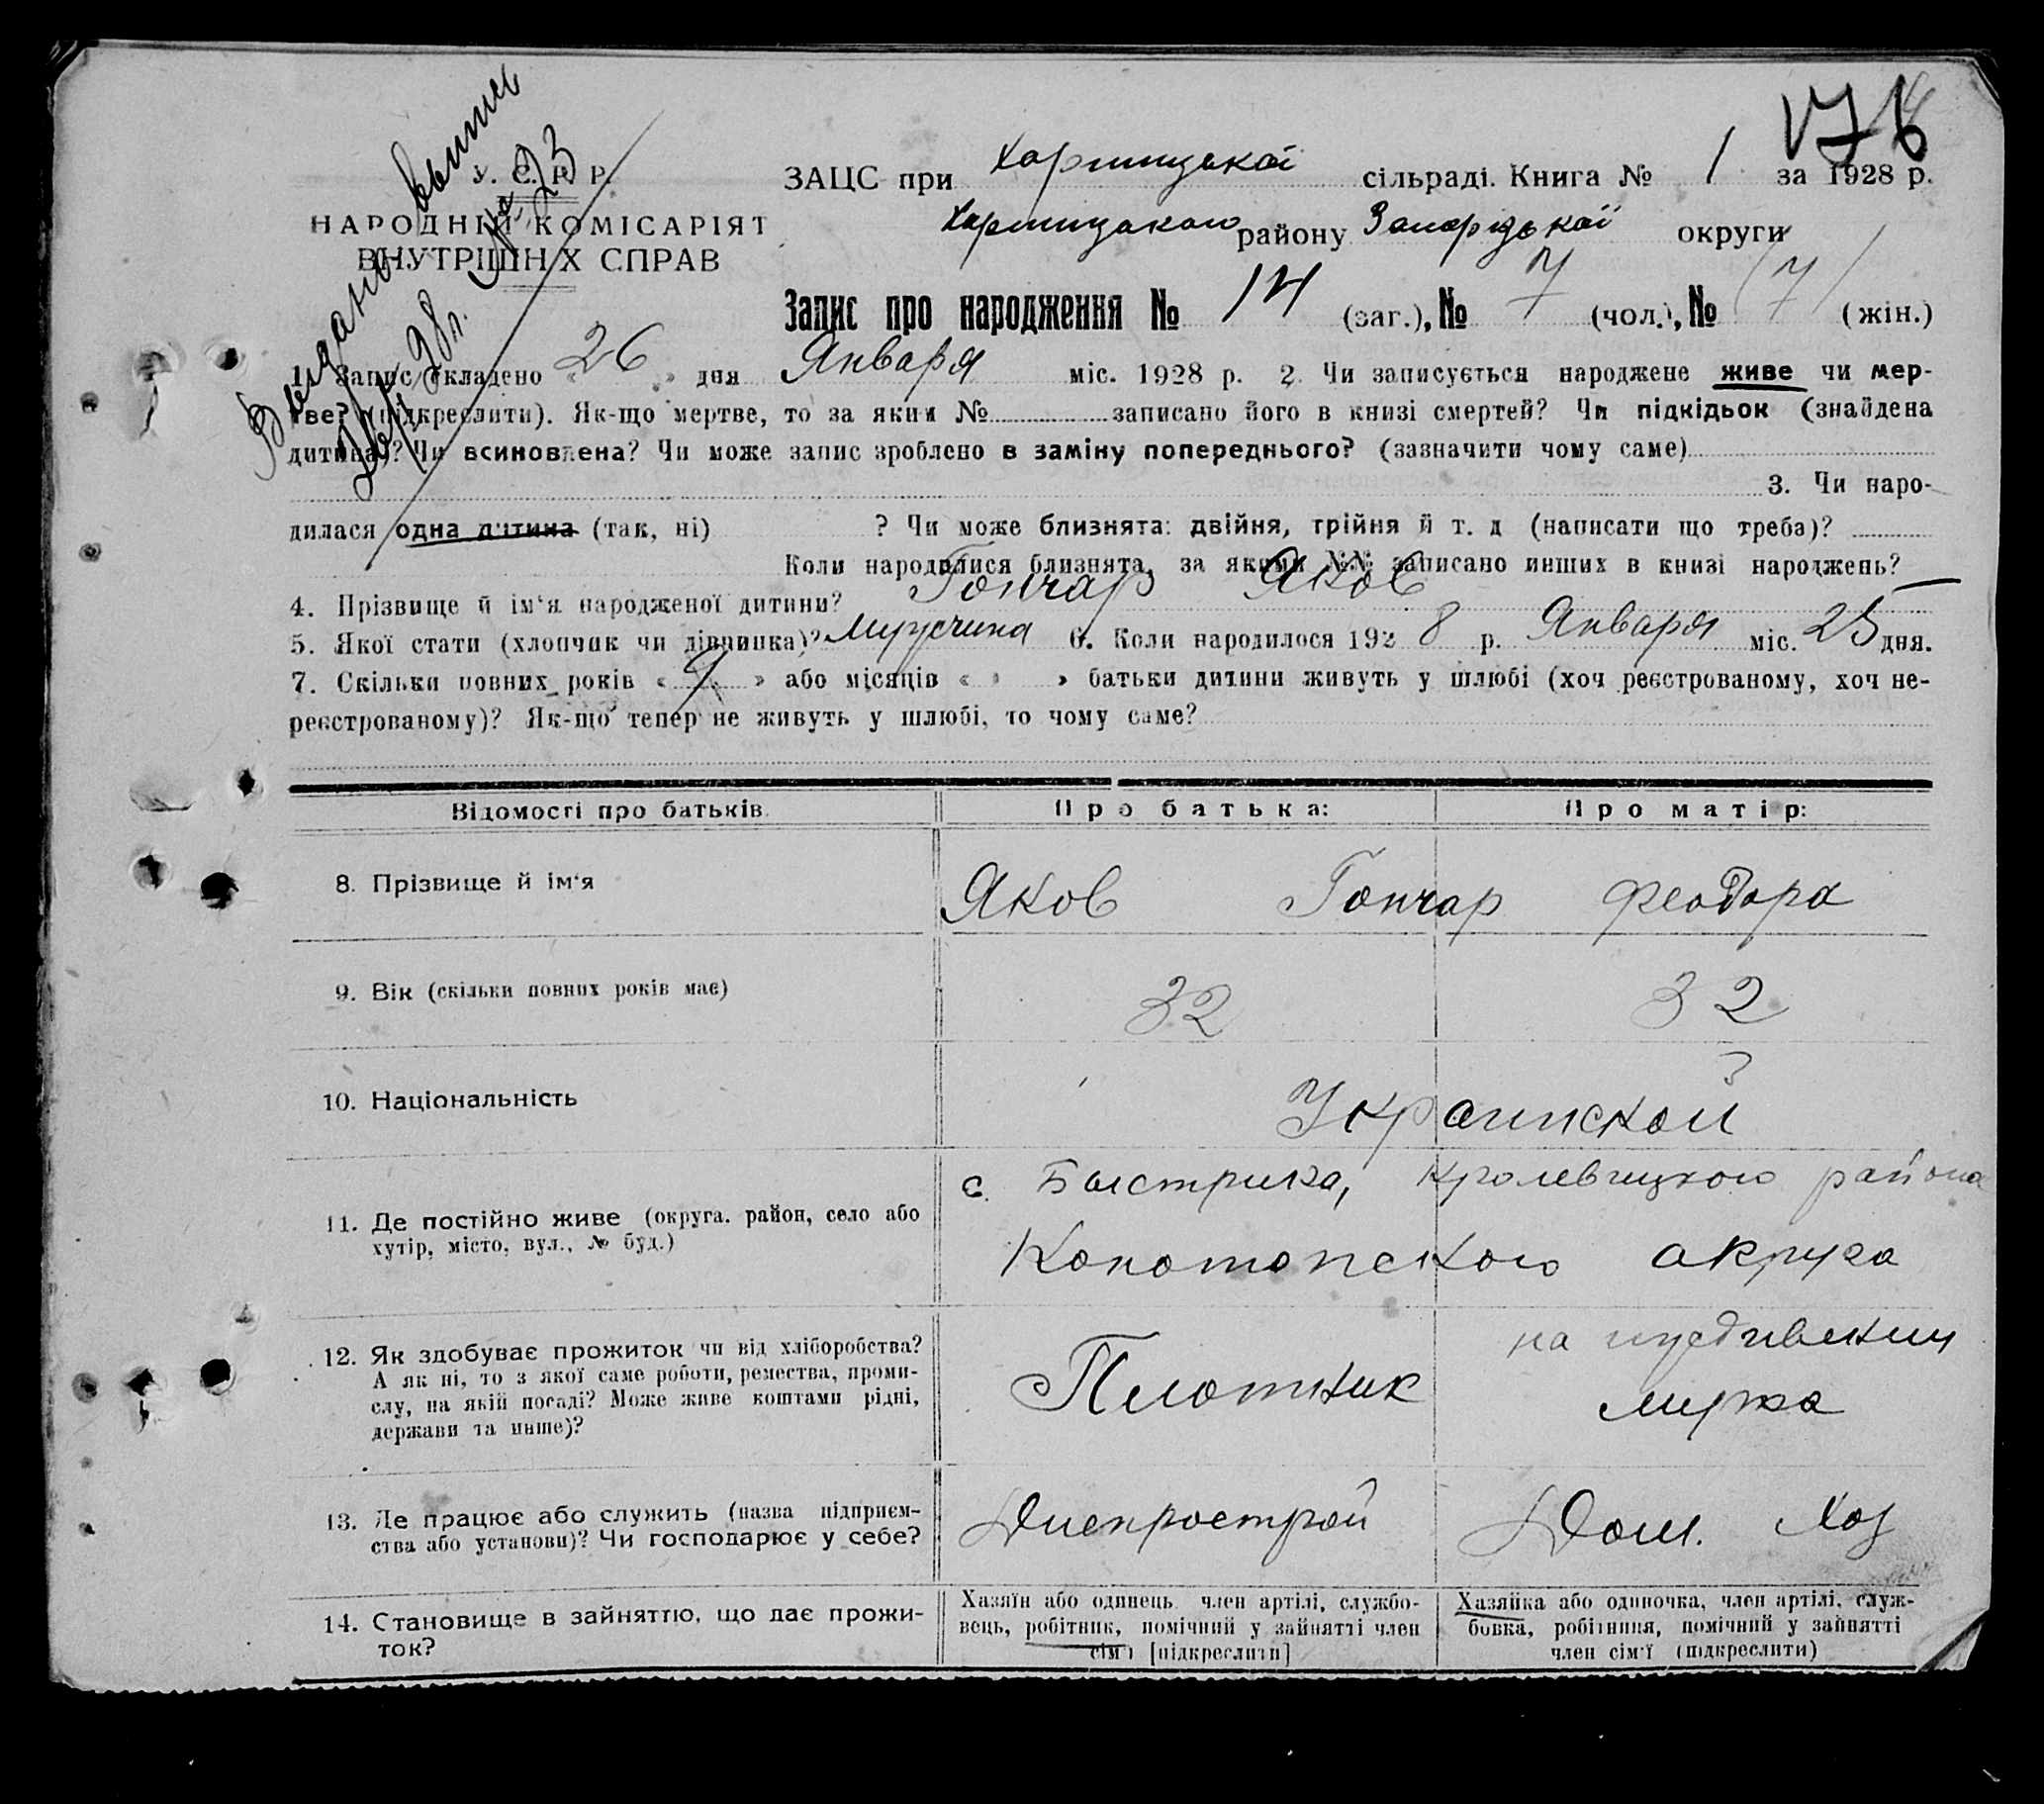 176
У. С. Р. Р.
НАРОДНІЙ КОМІСАРІЯТ
ВНУТРІШНІХ СПРАВ
Выдано выпись
28 г. № 23
ЗАЦС при Хортицькой сільраді. Книга № 1 за 1928 р.
Хортицакого району Запоріжької округи
Запис про народження № 14 (заг.), № 7 (чол.), № 7 (жін.)
1. Запис складено « 26 » дня Января міс. 1928 р. 2. Чи записується народжене живе чи мер-
тве? (підкреслити). Як-що мертве, то за яким № записано його в книзі смертей? Чи підкідьок (знайдена
дитина)? Чи всиновлена? Чи може запис зроблено в заміну попереднього? (зазначити чому саме)
3. Чи наро-
дилася одна дитина (так, ні) ? Чи може близнята: двійня, трійня й т. д (написати що треба)?
Коли народилися близнята, за якими №№ записано инших в книзі народжень?
4. Прізвище й ім'я народженої дитини? Гончар Яков
5. Якої стати (хлопчик чи дівчинка)? Мущина 6. Коли народилося 1928 р. Января міс. 25 дня.
7. Скільки повних років « 9 » або місяців « » батьки дитини живуть у шлюбі (хоч реєстрованому, хоч не-
реєстрованому)? Як-що тепер не живуть у шлюбі, то чому саме?
Відомості про батьків Про батька: Про матір:
8. Прізвище й ім'я Яков Гончар Феодора
9. Вік (скільки повних років має) 32 32
10. Національність Украинской
11. Де постійно живе (округа. район, село або
хутір, місто, вул., № буд.)
с. Быстрика, Кролевицкого района
Конотопского округа
12. Як здобуває прожиток чи від хліборобства?
А як ні, то з якої саме роботи, ремества, проми-
слу, на якій посаді? Може живе коштами рідні,
держави та инше)?
Плотник
на иждивении
мужа
13. Де працює або служить (назва підприєм-
ства або установи)? Чи господарює у себе?
Днепрострой
Дом. Хоз
14. Становище в зайняттю, що дає прожи-
ток?
Хазяїн або одинець член артілі, службо-
вець, робітник, помічний у зайнятті член
сім'ї [підкреслити]
Хазяйка або одиночка, член артілі, служ-
бовка, робітниця, помічний у зайнятті
член сім'ї (підкреслити)